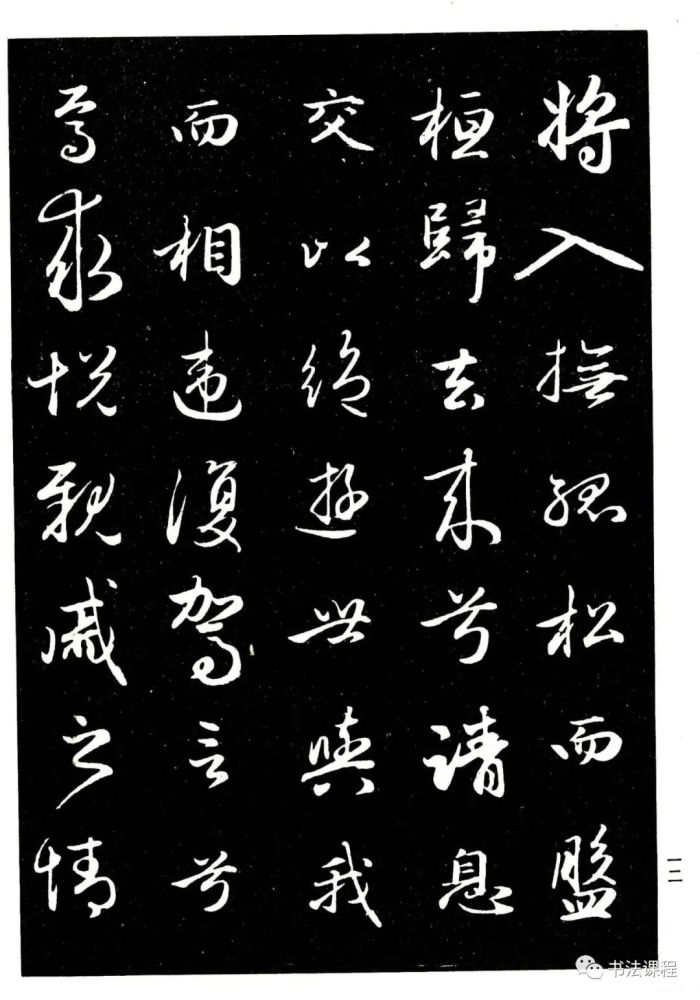 將入撫孤松而盤
桓歸去来兮請息
交以絕遊世與我
而相違復駕言兮
焉求悅親戚之情
一二
书法课程